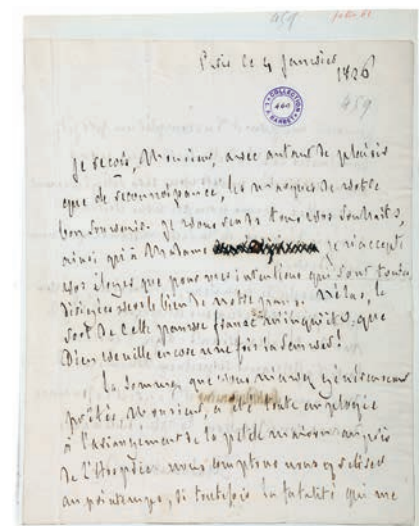 459
Paris ce 4 janvier
1826
COLLECTION
460
L. BARBET
459
Je reçois, Monsieur, avec autant de plaisir
que de reconnoissance, les marques de votre
bon souvenir. Je vous rends tous vos souhaits,
ainsi qu'à Madame je n'accepte
vos éloges que pour mes intentions qui sont toutes
dirigées vers le bien de notre pays. Hélas, le
sort de cette pauvre france m'inquiète, que
Dieu veuille encore une fois la sauver!
La somme, que vous m'avez généreusement
prêtée, Monsieur, a été toute employée
à l'arrangement de la petite maison auprès
de l'Hospice. nous comptons nous y
au printemps, si toutefois la fatalité qui me